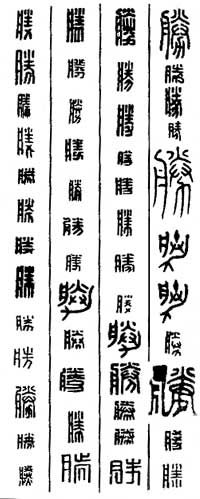 勝勝勝勝勝勝勝勝勝勝勝
勝勝勝勝勝勝勝勝勝勝勝勝勝
勝勝勝勝勝勝勝勝勝勝勝勝
勝勝勝勝勝勝勝勝勝勝勝勝勝